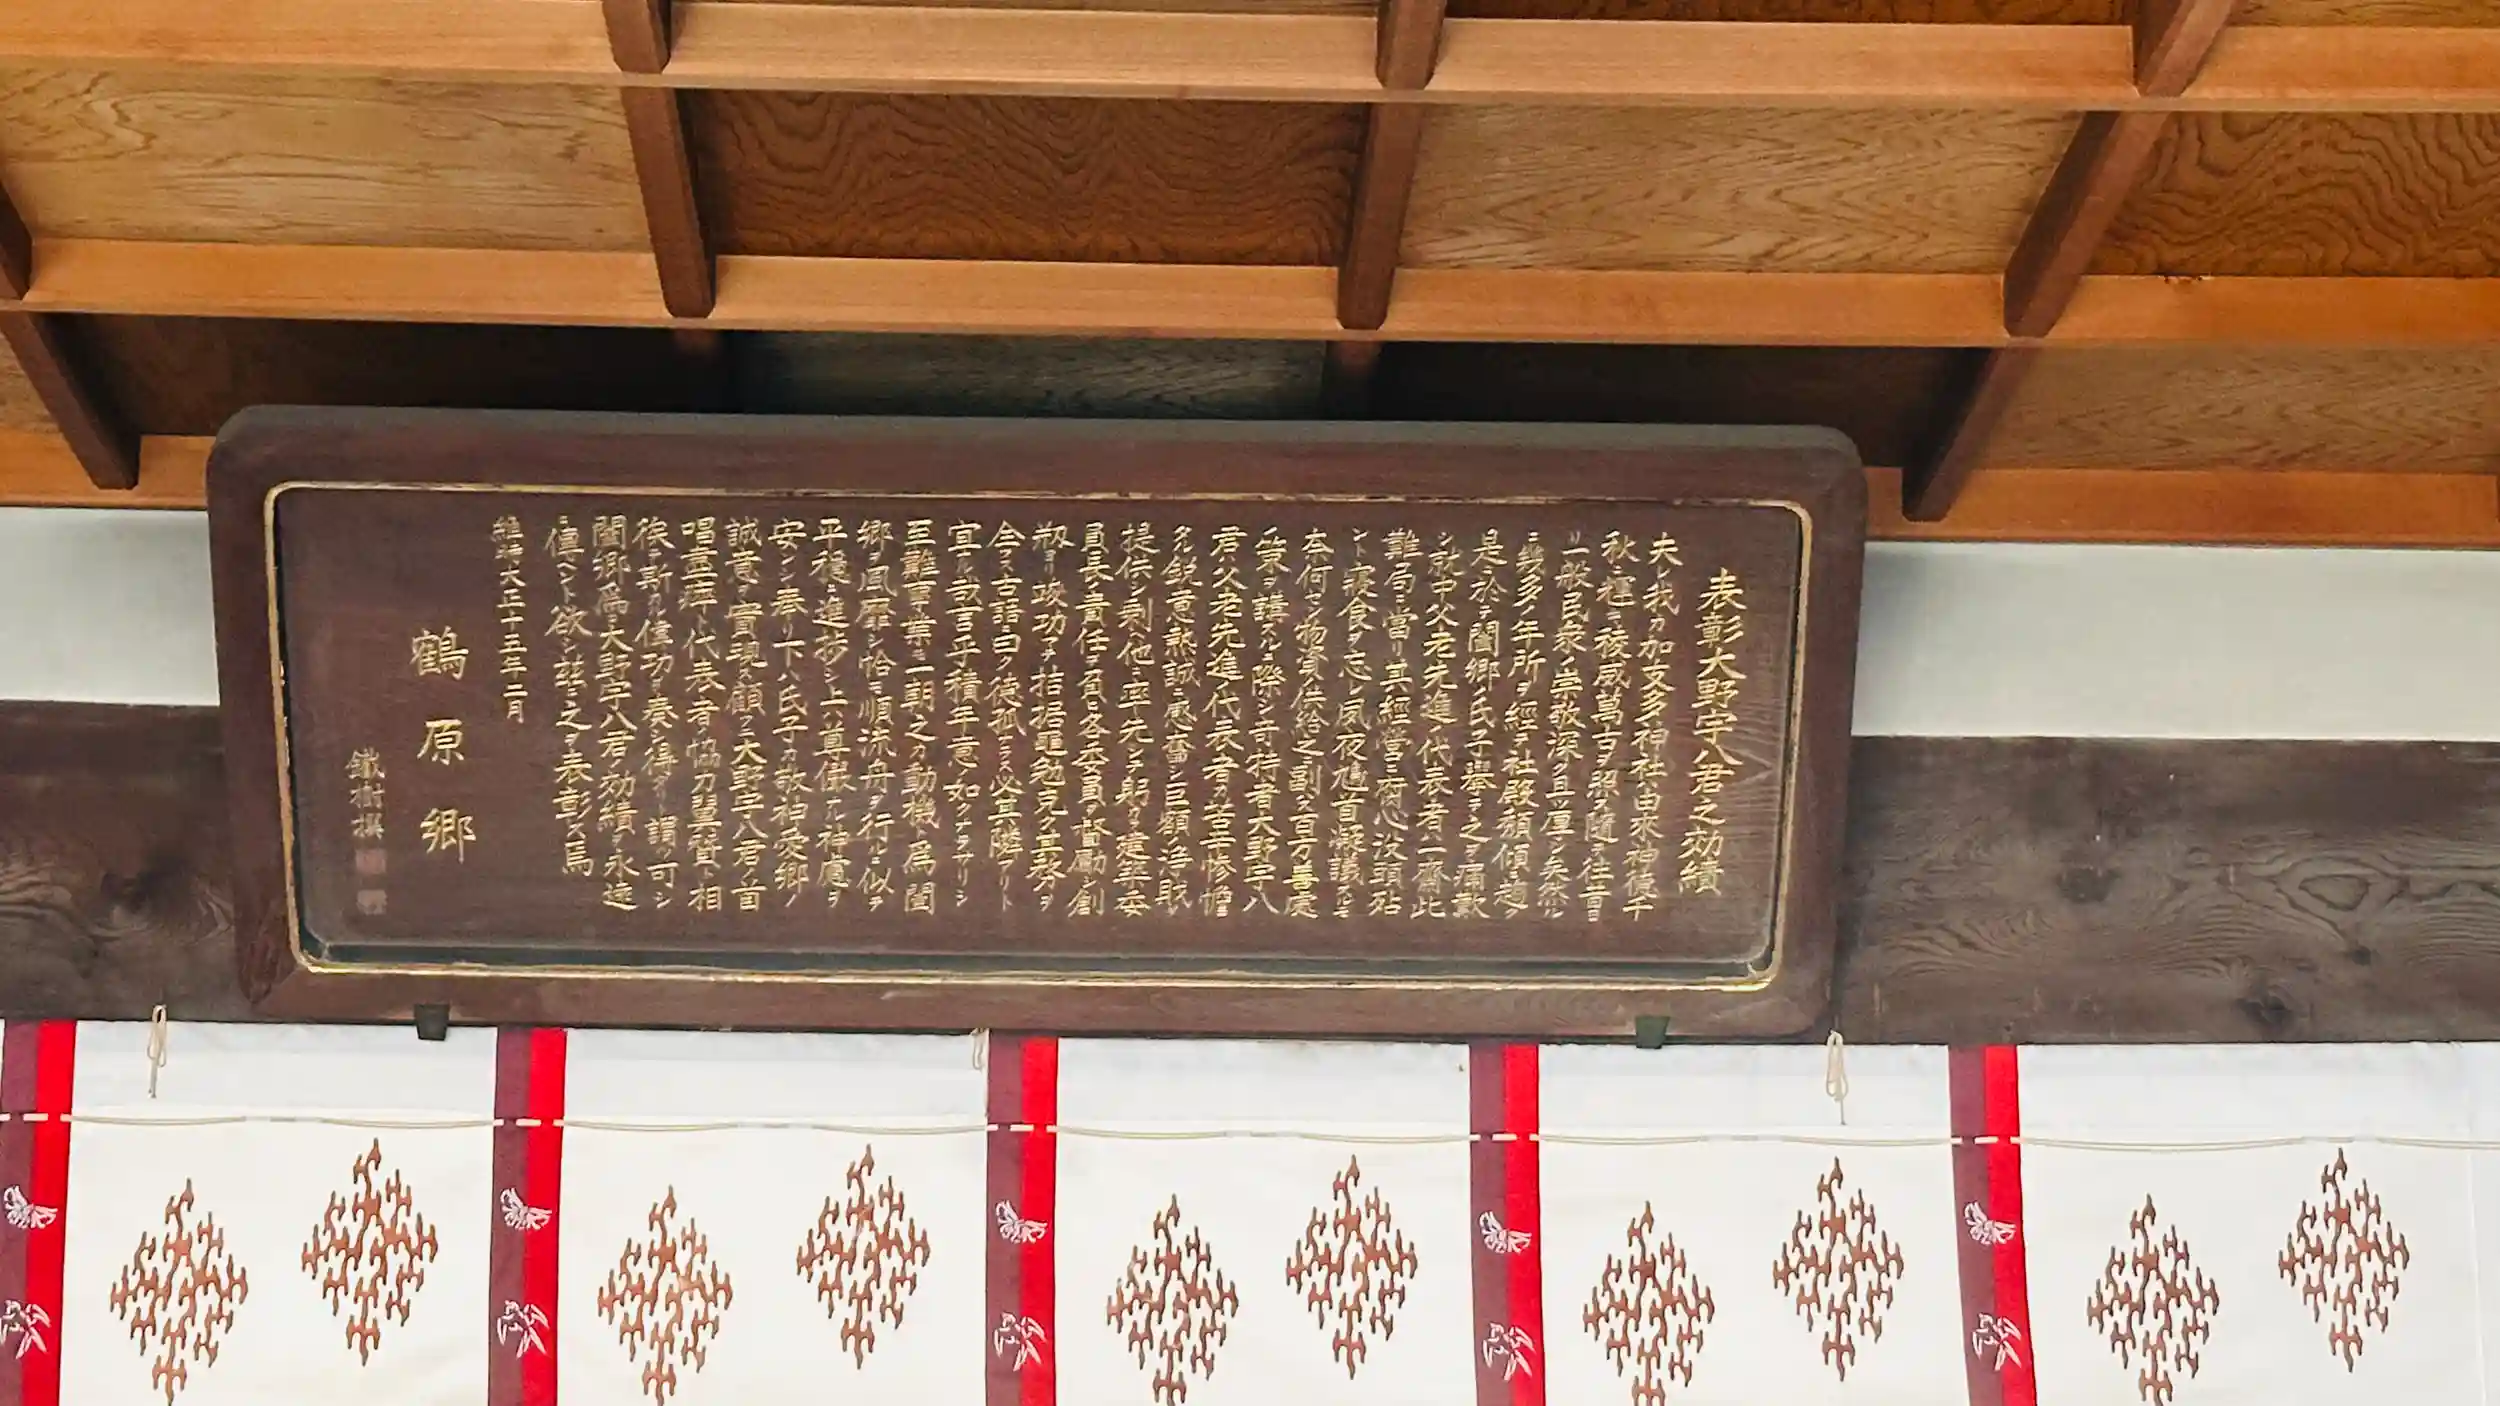 表彰大野宇八君之効績
夫レ我カ加支多神社ハ由來神徳千
秋ニ輝キ稜威萬古ヲ照ス隨テ往昔ヨ
リ一般民衆ノ崇敬深ク且ツ厚シ矣然ルニ
幾多ノ年所ヲ經テ社殿頽傾ニ趨ク
是ニ於テ闔郷ノ氏子擧テ之ヲ痛歎
シ就中父老先進ノ代表者一齋此
難局ニ當リ其經營ニ腐心没頭殆
ント寝食ヲ忘レ夙夜鳩首凝議
奈何セン物資供給之ニ副ハス百方善處
ノ策ヲ講スルニ際シ奇特者大野宇八
君ハ父老先進ノ代表者カ苦辛惨憺
タル鋭意熱誠ニ感奮シ巨額ノ浄財ヲ
提供シ剰ヘ他ニ率先シテ躬カラ建築委
員長ノ責任ヲ負ヒ各委員ヲ督勵シ創
ヨリ竣功マテ拮据黽勉克ク其務ヲ
全フス古語ニ曰ク徳孤ナラス必其隣アリト
宜ナル哉言乎積年意ノ如クナラサリシ
至難事業モ一朝之カ動機ト爲リ闔
郷ヲ風靡シ恰モ順流舟ヲ行ルニ似テ
平穏ニ進捗シ上ハ尊儼ナル神慮ヲ
安ンシ奉リ下ハ氏子カ敬神愛郷ノ
誠意ヲ實現ス顧フニ大野宇八君ノ首
唱盡瘁ト代表者ノ協力翼賛ト相
俟テ斯ル偉功ヲ奏シ得タリト謂フ可シ
闔郷爲ニ大野宇八君ノ効績ヲ永遠
ニ傳ヘント欲シ茲ニ之ヲ表彰ス焉
維時大正十五年二月
鶴原郷
鐵樹撰